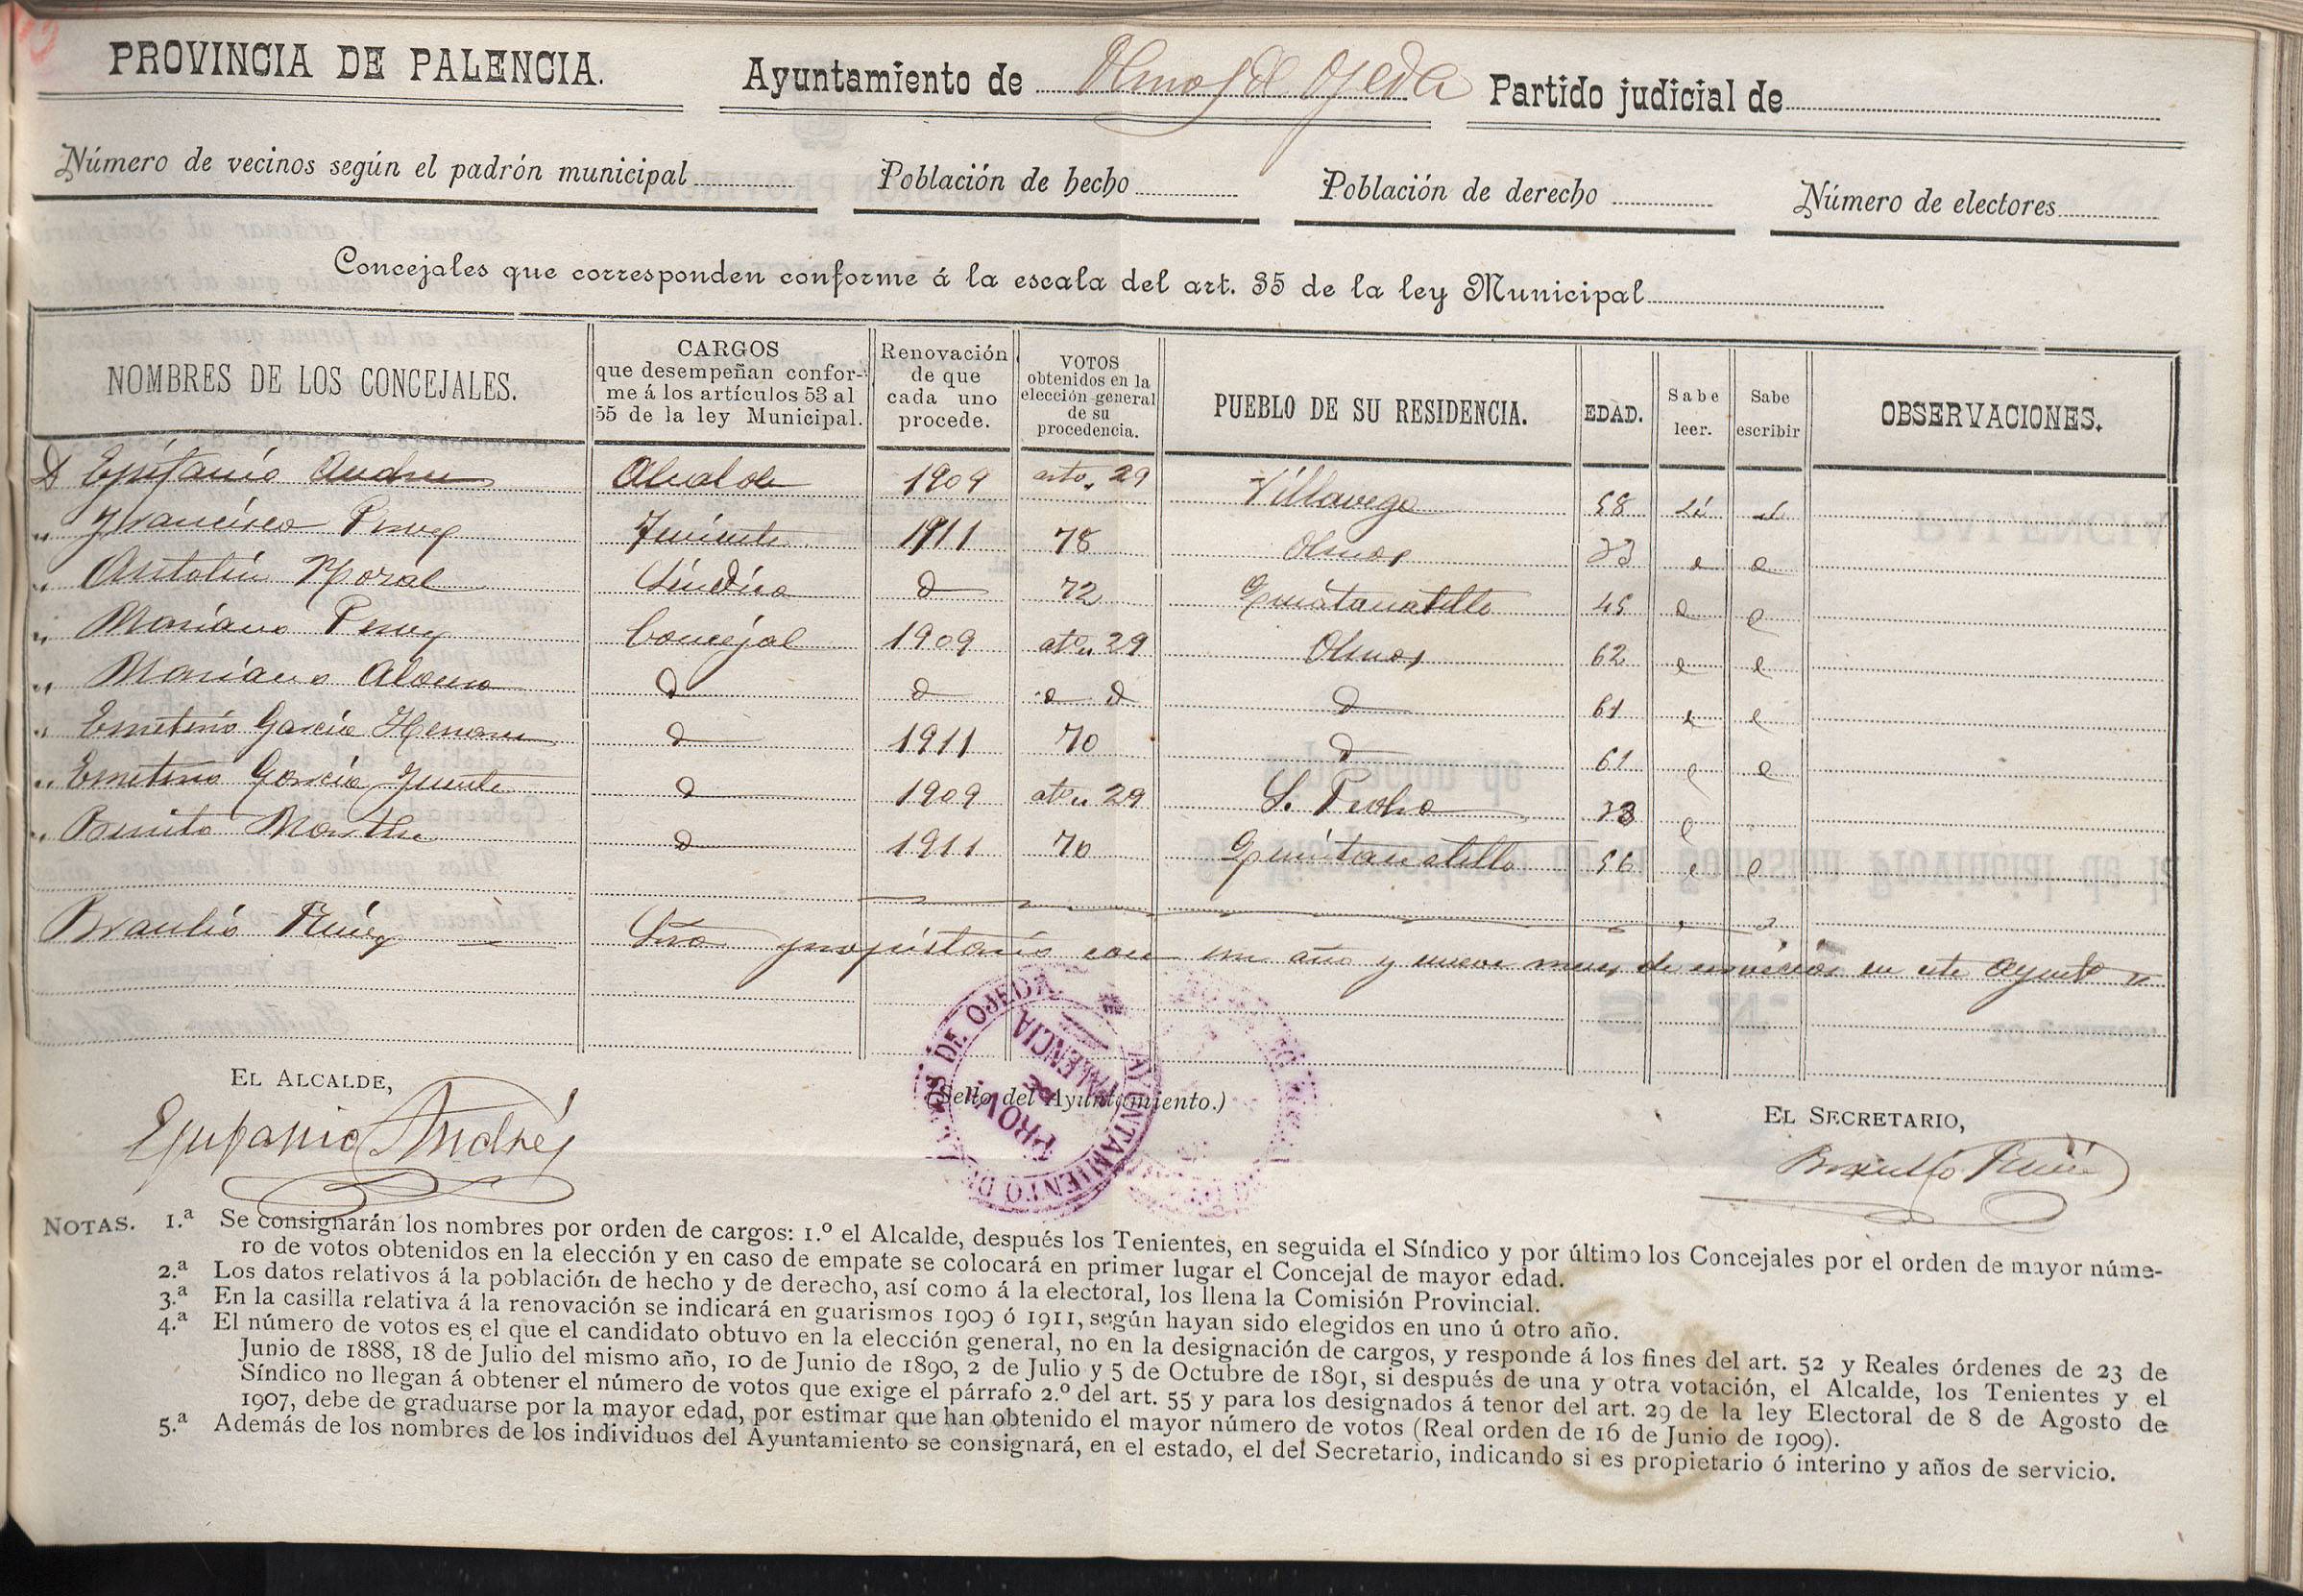 PROVINCIA DE PALENCIA. Ayuntamiento de Olmos de Ojeda Partido judicial de
Número de vecinos según el padrón municipal Población de hecho Población de derecho Número de electores
Concejales que corresponden conforme á la escala del art. 35 de la ley Municipal
NOMBRES DE LOS CONCEJALES.
CARGOS
que desempeñan confor-
me á los artículos 53 al
55 de la ley Municipal.
Renovación
de que
cada uno
procede.
VOTOS
obtenidos en la
elección general
de su
procedencia.
PUEBLO DE SU RESIDENCIA.
EDAD.
Sabe
leer.
Sabe
escribir
OBSERVACIONES.
D Epifanio Andres Alcalde 1909 arto. 29 Villavega 58 si si
" Francisco Perez Teniente 1911 78 Olmos 33
" Antolin Moral Sindico d 72 Quintanatello 45
" Mariano Perez Concejal 1909 29 Olmos 62
" Mariano Alonso d d d d 61
" Emeterio Garcia Herrero d 1911 70 d 61
" Emeterio Garcia Fuente d 1909 29 S. Pedro
" Benito Martin d 1911 70 Quintanatello 56
Braulio Ruiz Srio propietario con un año y nueve meses de servicios en este Ayunto
EL ALCALDE,
Epifanio Andrés
(Sello del Ayuntamiento.)
AYUNTAMIENTO DE OLMOS DE OJEDA
PROVA. DE PALENCIA
EL SECRETARIO,
Braulio Ruiz
NOTAS. 1.ª Se consignarán los nombres por orden de cargos: 1.º el Alcalde, después los Tenientes, en seguida el Síndico y por último los Concejales por el orden de mayor núme-
ro de votos obtenidos en la elección y en caso de empate se colocará en primer lugar el Concejal de mayor edad.
2.ª Los datos relativos á la población de hecho y de derecho, así como á la electoral, los llena la Comisión Provincial.
3.ª En la casilla relativa á la renovación se indicará en guarismos 1909 ó 1911, según hayan sido elegidos en uno ú otro año.
4.ª El número de votos es el que el candidato obtuvo en la elección general, no en la designación de cargos, y responde á los fines del art. 52 y Reales órdenes de 23 de
Junio de 1888, 18 de Julio del mismo año, 10 de Junio de 1890, 2 de Julio y 5 de Octubre de 1891, si después de una y otra votación, el Alcalde, los Tenientes y el
Síndico no llegan á obtener el número de votos que exige el párrafo 2.º del art. 55 y para los designados á tenor del art. 29 de la ley Electoral de 8 de Agosto de
1907, debe de graduarse por la mayor edad, por estimar que han obtenido el mayor número de votos (Real orden de 16 de Junio de 1909).
5.ª Además de los nombres de los individuos del Ayuntamiento se consignará, en el estado, el del Secretario, indicando si es propietario ó interino y años de servicio.